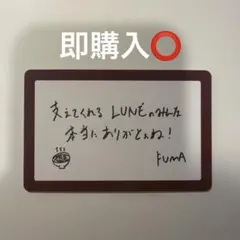 即購入⭕
支えてくれる LUNÉのみんな
本当にありがとね!
FUMA